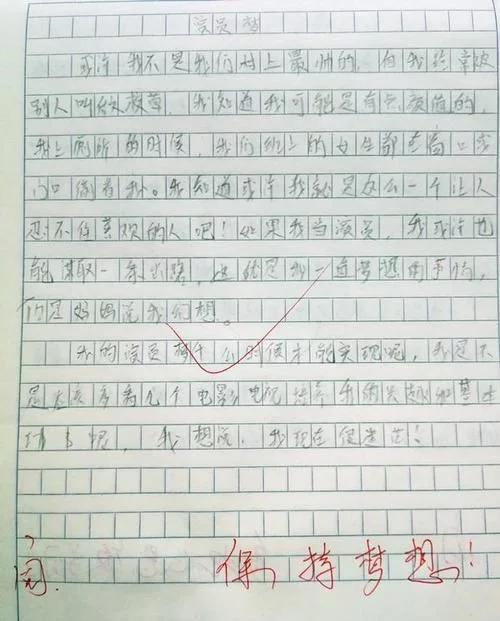 演员梦
或许我不是我们村上最帅的，但我经常被
别人叫做校草，我知道我可能是有点颜值的，
我上厕所的时候，我们班上的女生都在窗口或
门口偷看我。我知道或许我就是这么一个让人
忍不住喜欢的人吧！如果我当演员，我或许也
能谋取一条出路，这就是我一直梦想的事情，
但是妈妈说我幻想。
我的演员梦什么时候才能实现呢，我是不
是应该多看几个电影电视培养我的兴趣和基
情去呢，我想说，我现在很迷茫！
阅. 保持梦想！